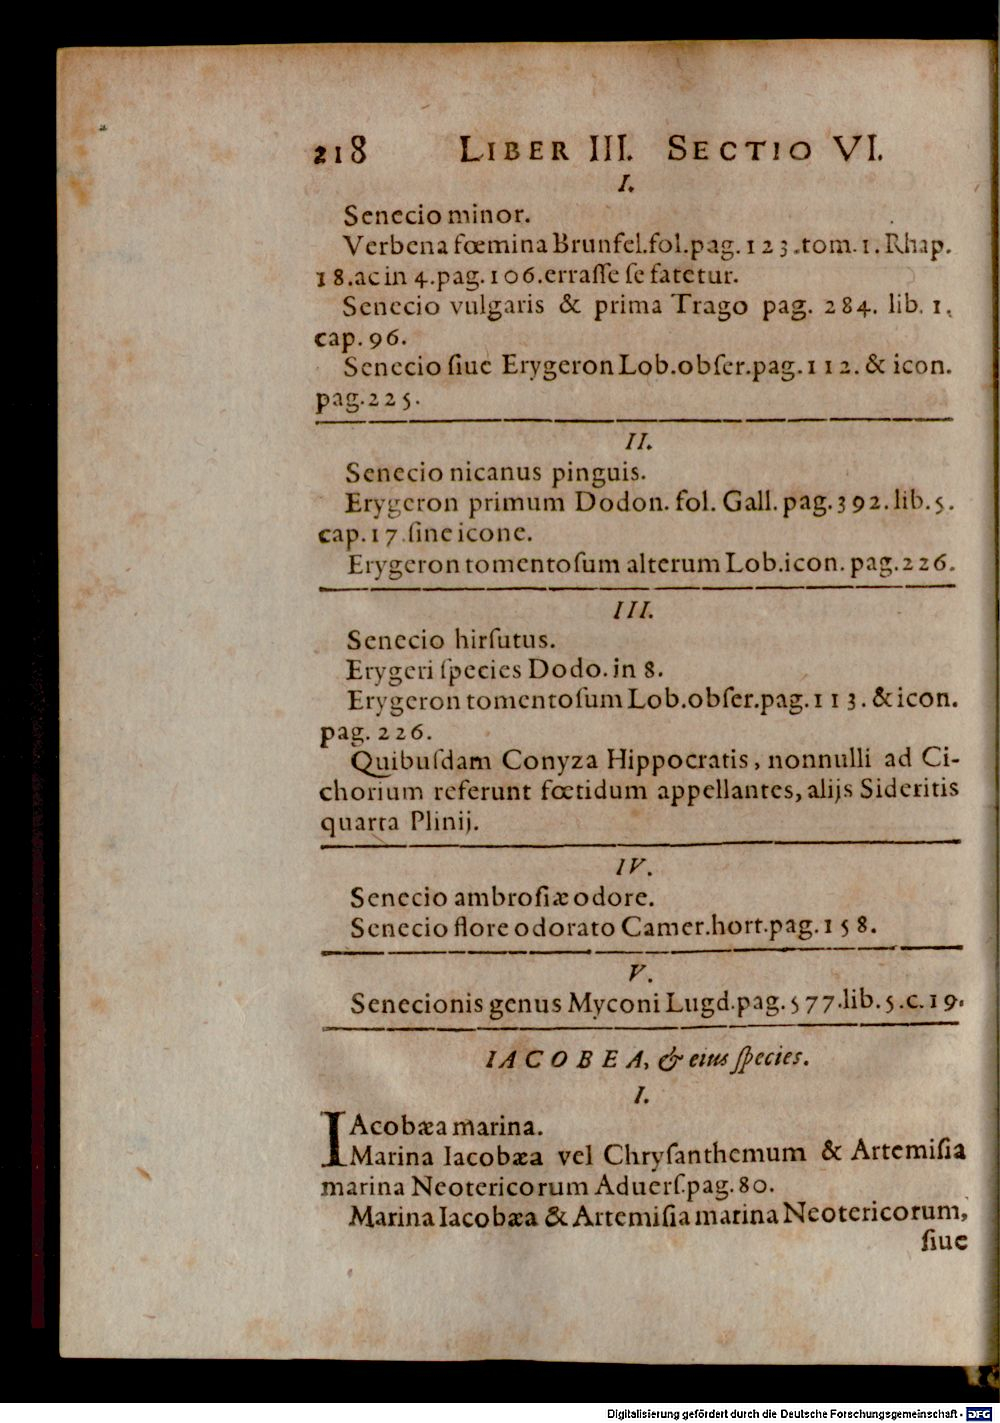 218 LIBER III. SECTIO VI.
I.
Senecio minor.
Verbena fœmina Brunfel.fol.pag.123.tom.1.Rhap.
18.ac in 4.pag.106.erraſſe ſe fatetur.
Senecio vulgaris & prima Trago pag. 284. lib. 1.
cap.96.
Senecio ſiue Erygeron Lob.obſer.pag.112.& icon.
pag.225.
II.
Senecio nicanus pinguis.
Erygeron primum Dodon. fol. Gall. pag.392.lib.5.
cap.17.ſine icone.
Erygeron tomentoſum alterum Lob.icon. pag.226.
III.
Senecio hirſutus.
Erygeri ſpecies Dodo. in 8.
Erygeron tomentoſum Lob.obſer.pag.113.&icon.
pag.226.
Quibuſdam Conyza Hippocratis, nonnulli ad Ci-
chorium referunt fœtidum appellantes, alijs Sideritis
quarta Plinij.
IV.
Senecio ambroſiæ odore.
Senecio flore odorato Camer.hort.pag.158.
V.
Senecionis genus Myconi Lugd.pag.577.lib.5.c.19.
IACOBEA, & eius ſpecies.
I.
IAcobæa marina.
Marina Iacobæa vel Chryſanthemum & Artemiſia
marina Neotericorum Aduerſ.pag.80.
Marina Iacobæa & Artemiſia marina Neotericorum,
ſiue
Digitalisierung gefördert durch die Deutsche Forschungsgemeinschaft - DFG